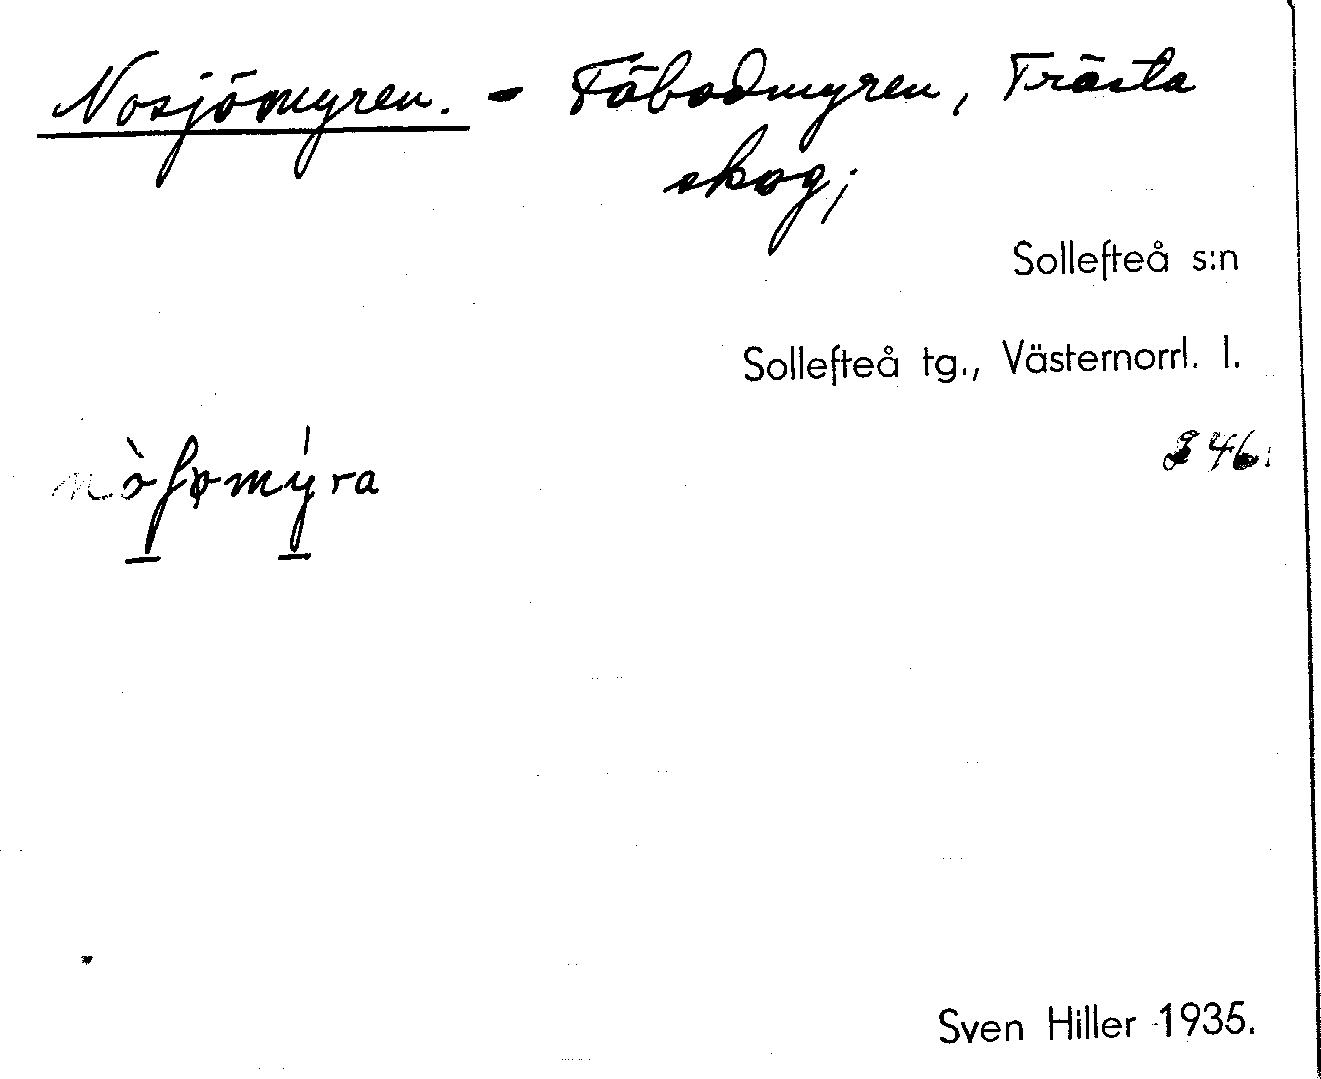 Nosjömyren. - Fäbodmyren, Trästa
skog;
Sollefteå s:n
Sollefteå tg., Västernorrl. l.
46.
nòʃømýra
Sven Hiller 1935.